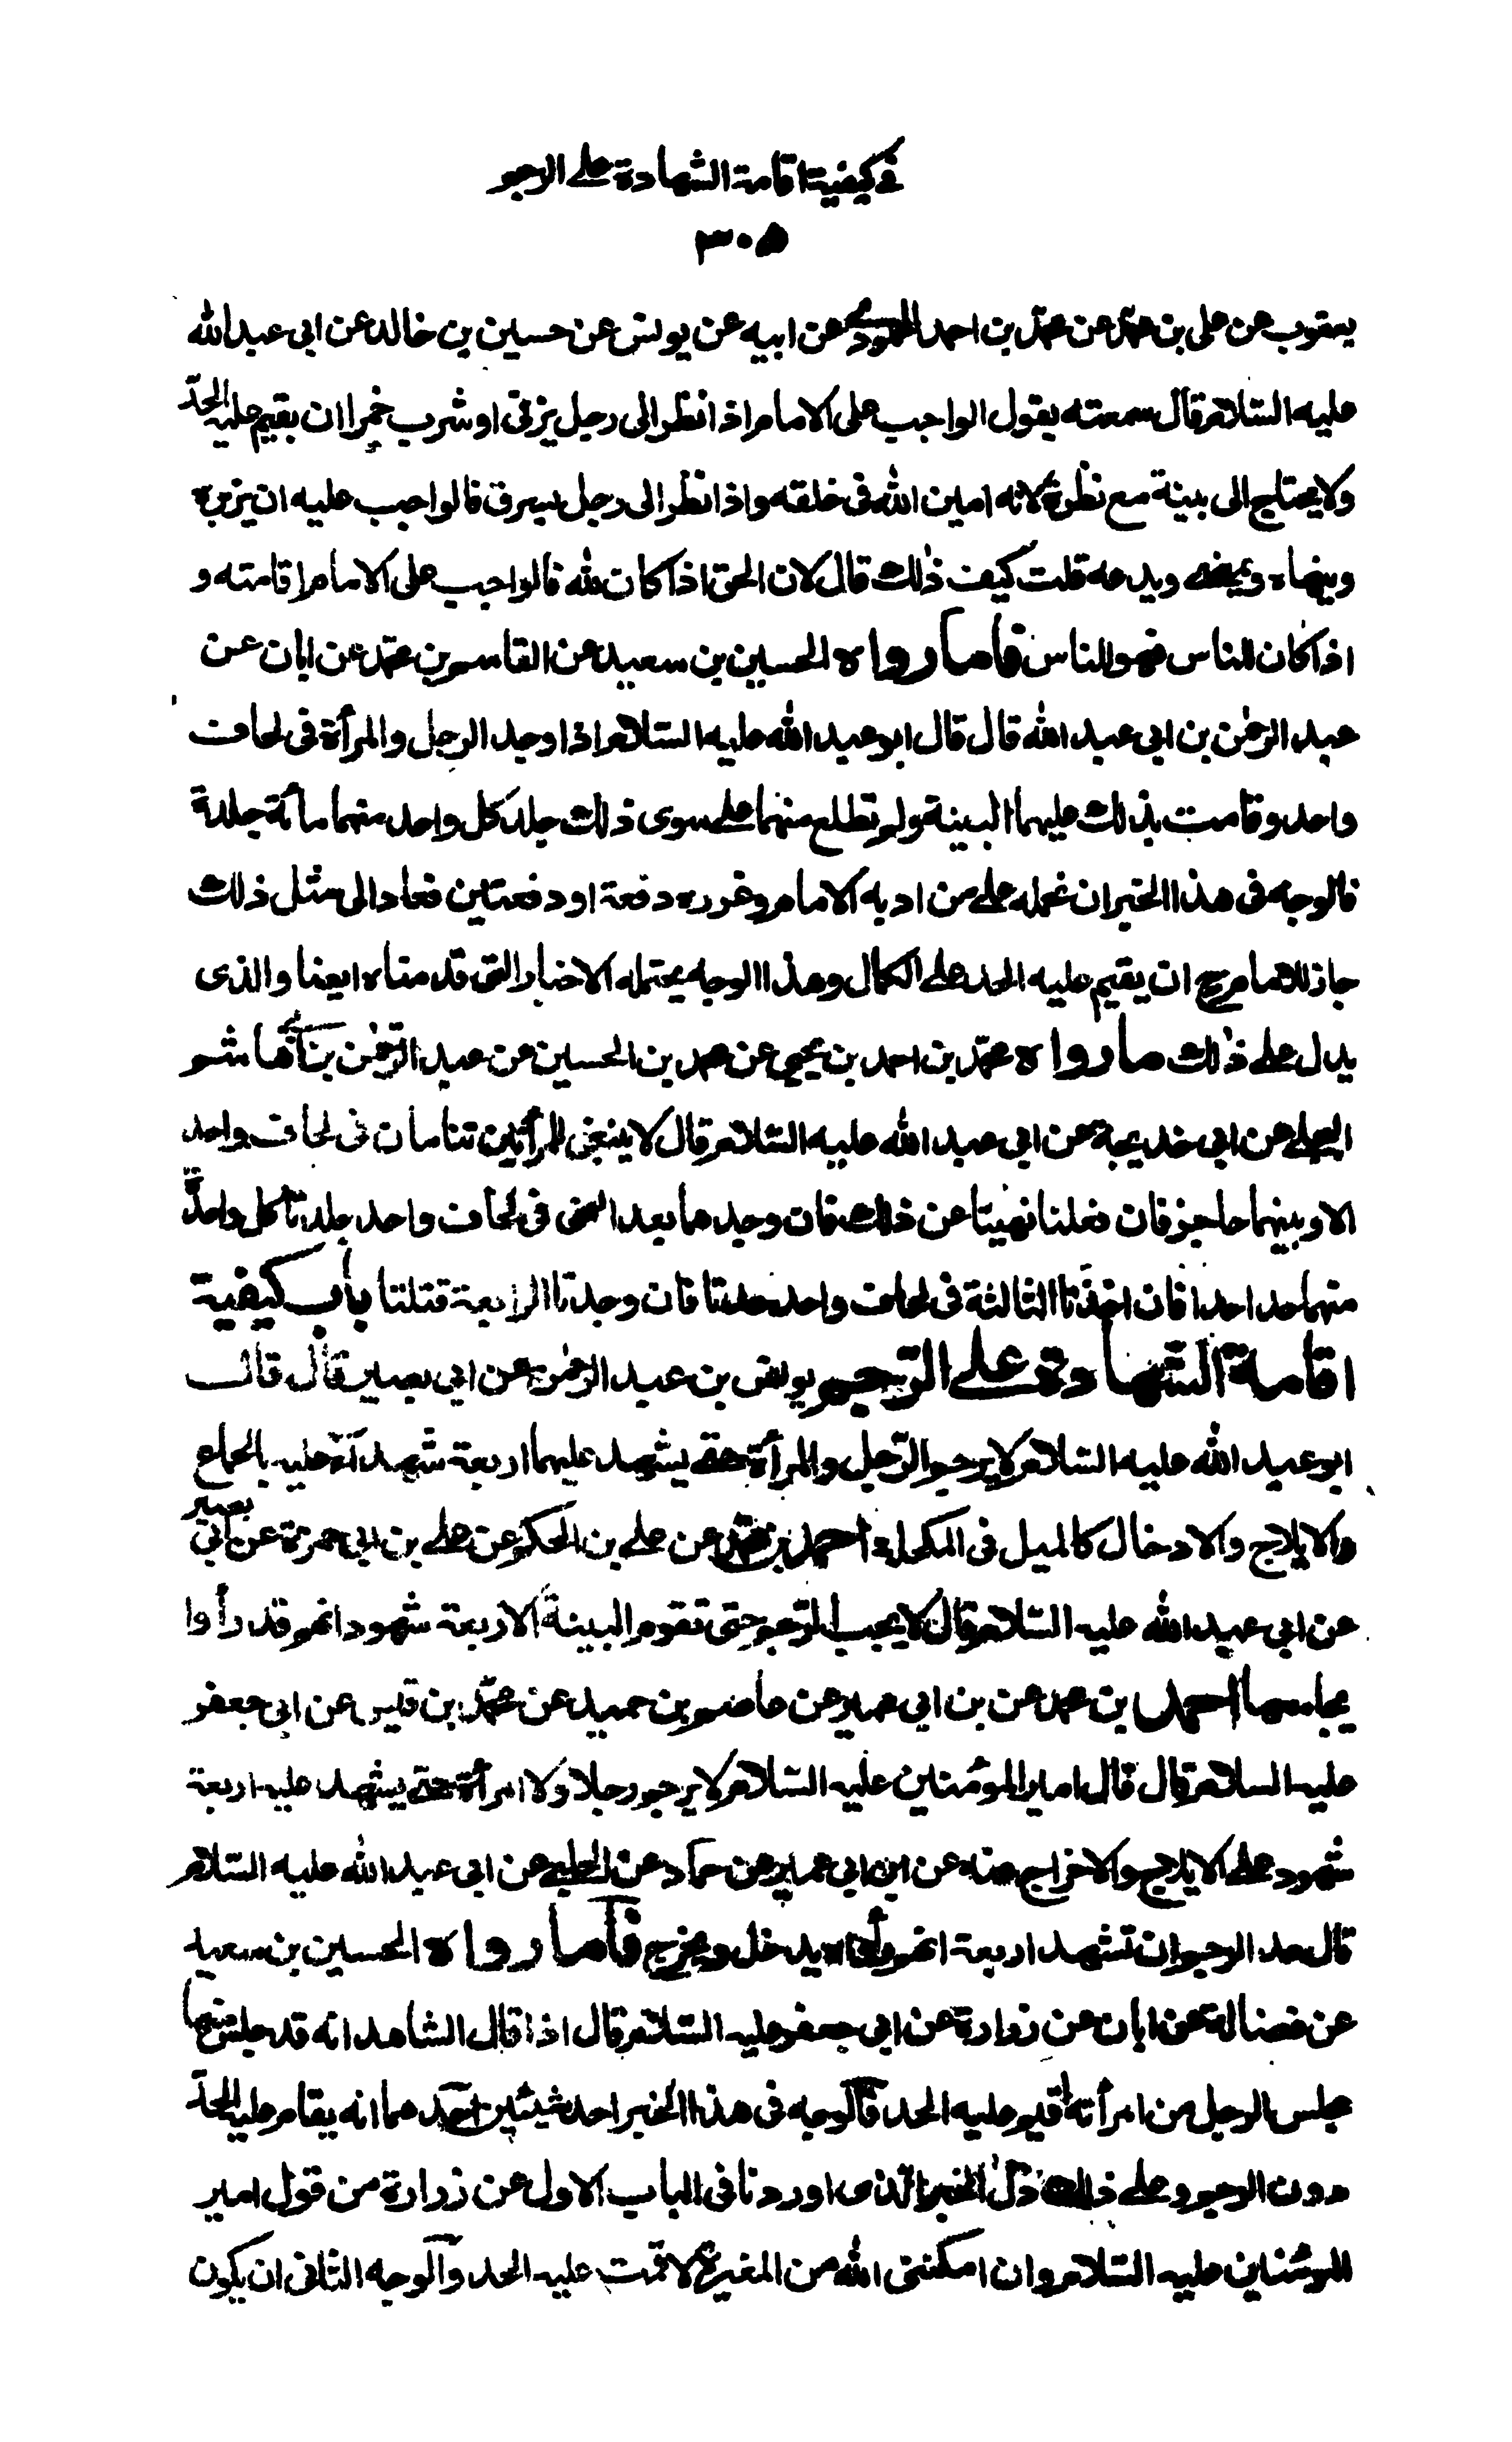 في كيفية اقامة الشهادة على الرجم
٣٠٥
يعقوب عن على بن محمد عن محمد بن احمد المحمودى عن ابيه عن يونس عن حسين بن خالد عن ابى عبدالله
عليه السلام قال سمعته يقول الواجب على الامام اذا نظر الى رجل يزنى او شرب خمرا ان يقيم عليه الحدّ
ولا يحتاج الى بينة مع نظره لانه امين الله فى خلقه واذا نظر الى رجل يسرق فالواجب عليه ان يزبره
وينهاه ويمضى ويدعه قلت كيف ذلك قال لان الحق اذا كان لله فالواجب على الامام اقامته و
اذا كان للناس فهو للناس فاما رواه الحسين بن سعيد عن القاسم بن محمد عن ابان عن
عبد الرحمن بن ابى عبد الله قال قال ابو عبد الله عليه السلام اذا وجد الرجل والمرأة فى لحاف
واحد وقامت بذلك عليهما البينة ولم تطلع منهما على سوى ذلك جلد كل واحد منهما مائة جلدة
فالوجه فى هذا الخبر ان نحمله على من ادبه الامام وعزره دفعة او دفعتين فعاد الى مثل ذلك
جاز للامام ح ان يقيم عليه الحد على الكمال وهذا الوجه يحتمله الاخبار التى قدمناه ايضا والذى
يدل على ذلك ما رواه محمّد بن احمد بن يحيى عن محمد بن الحسين عن عبد الرحمن بن ابى هاشم
البجلى عن ابى خديجة عن ابى عبد الله عليه السلام قال لا ينبغى لامرأتين تنامان فى لحاف واحد
الا وبينهما حاجز فان فعلتا نهيتا عن ذلك فان وجدهما بعد النهى فى لحاف واحد جلدتا كل واحدة
منهما حدا حدا فان اخذتا الثالثة فى لحاف واحد حدتا فان وجدتا الرابعة قتلتا باب كيفية
اقامة الشهادة على الرجم يونس بن عبد الرحمن عن ابى بصير قال قال
ابو عبد الله عليه السلام لا يرجم الرّجل والمرأة حتى يشهد عليهما اربعة شهداء عليه بالجماع
والايلاج والادخال كالميل فى المكحلة احمد بن محمد عن على بن الحكم عن على بن ابى حمزة عن ابى بصير
عن ابى عبد الله عليه السلام قال لا يجب الرجم حتى تقوم البينة الاربعة شهود انهم قد رأوا
يجامعها احمد بن محمد عن بن ابى عمير عن عاصم بن حميد عن محمّد بن قيس عن ابى جعفر
عليه السلام قال قال امير المؤمنين عليه السلام لا يرجم رجلا ولا امرأة حتى يشهد عليه اربعة
شهود على الايلاج والاخراج عنه عن ابن ابى عمير عن حماد عن الحلبى عن ابى عبد الله عليه السلام
قال حد الرجم ان تشهد اربعة انهم رأوه يدخل ويخرج فاما ما رواه الحسين بن سعيد
عن فضالة عن ابان عن زرارة عن ابى جعفر عليه السلام قال اذا قال الشاهد انه قد جلس منها
مجلس الرجل من امرأته اقيم عليه الحد فالوجه فى هذا الخبر احد شيئين احدهما انه يقام عليه الحدّ
دون الرجم وعلى ذلك دلّ الخبر الذى اوردنا فى الباب الاول عن زرارة من قول امير
المؤمنين عليه السلام وان امكننى الله من المغيرة لاقمت عليه الحد والوجه الثانى ان يكون